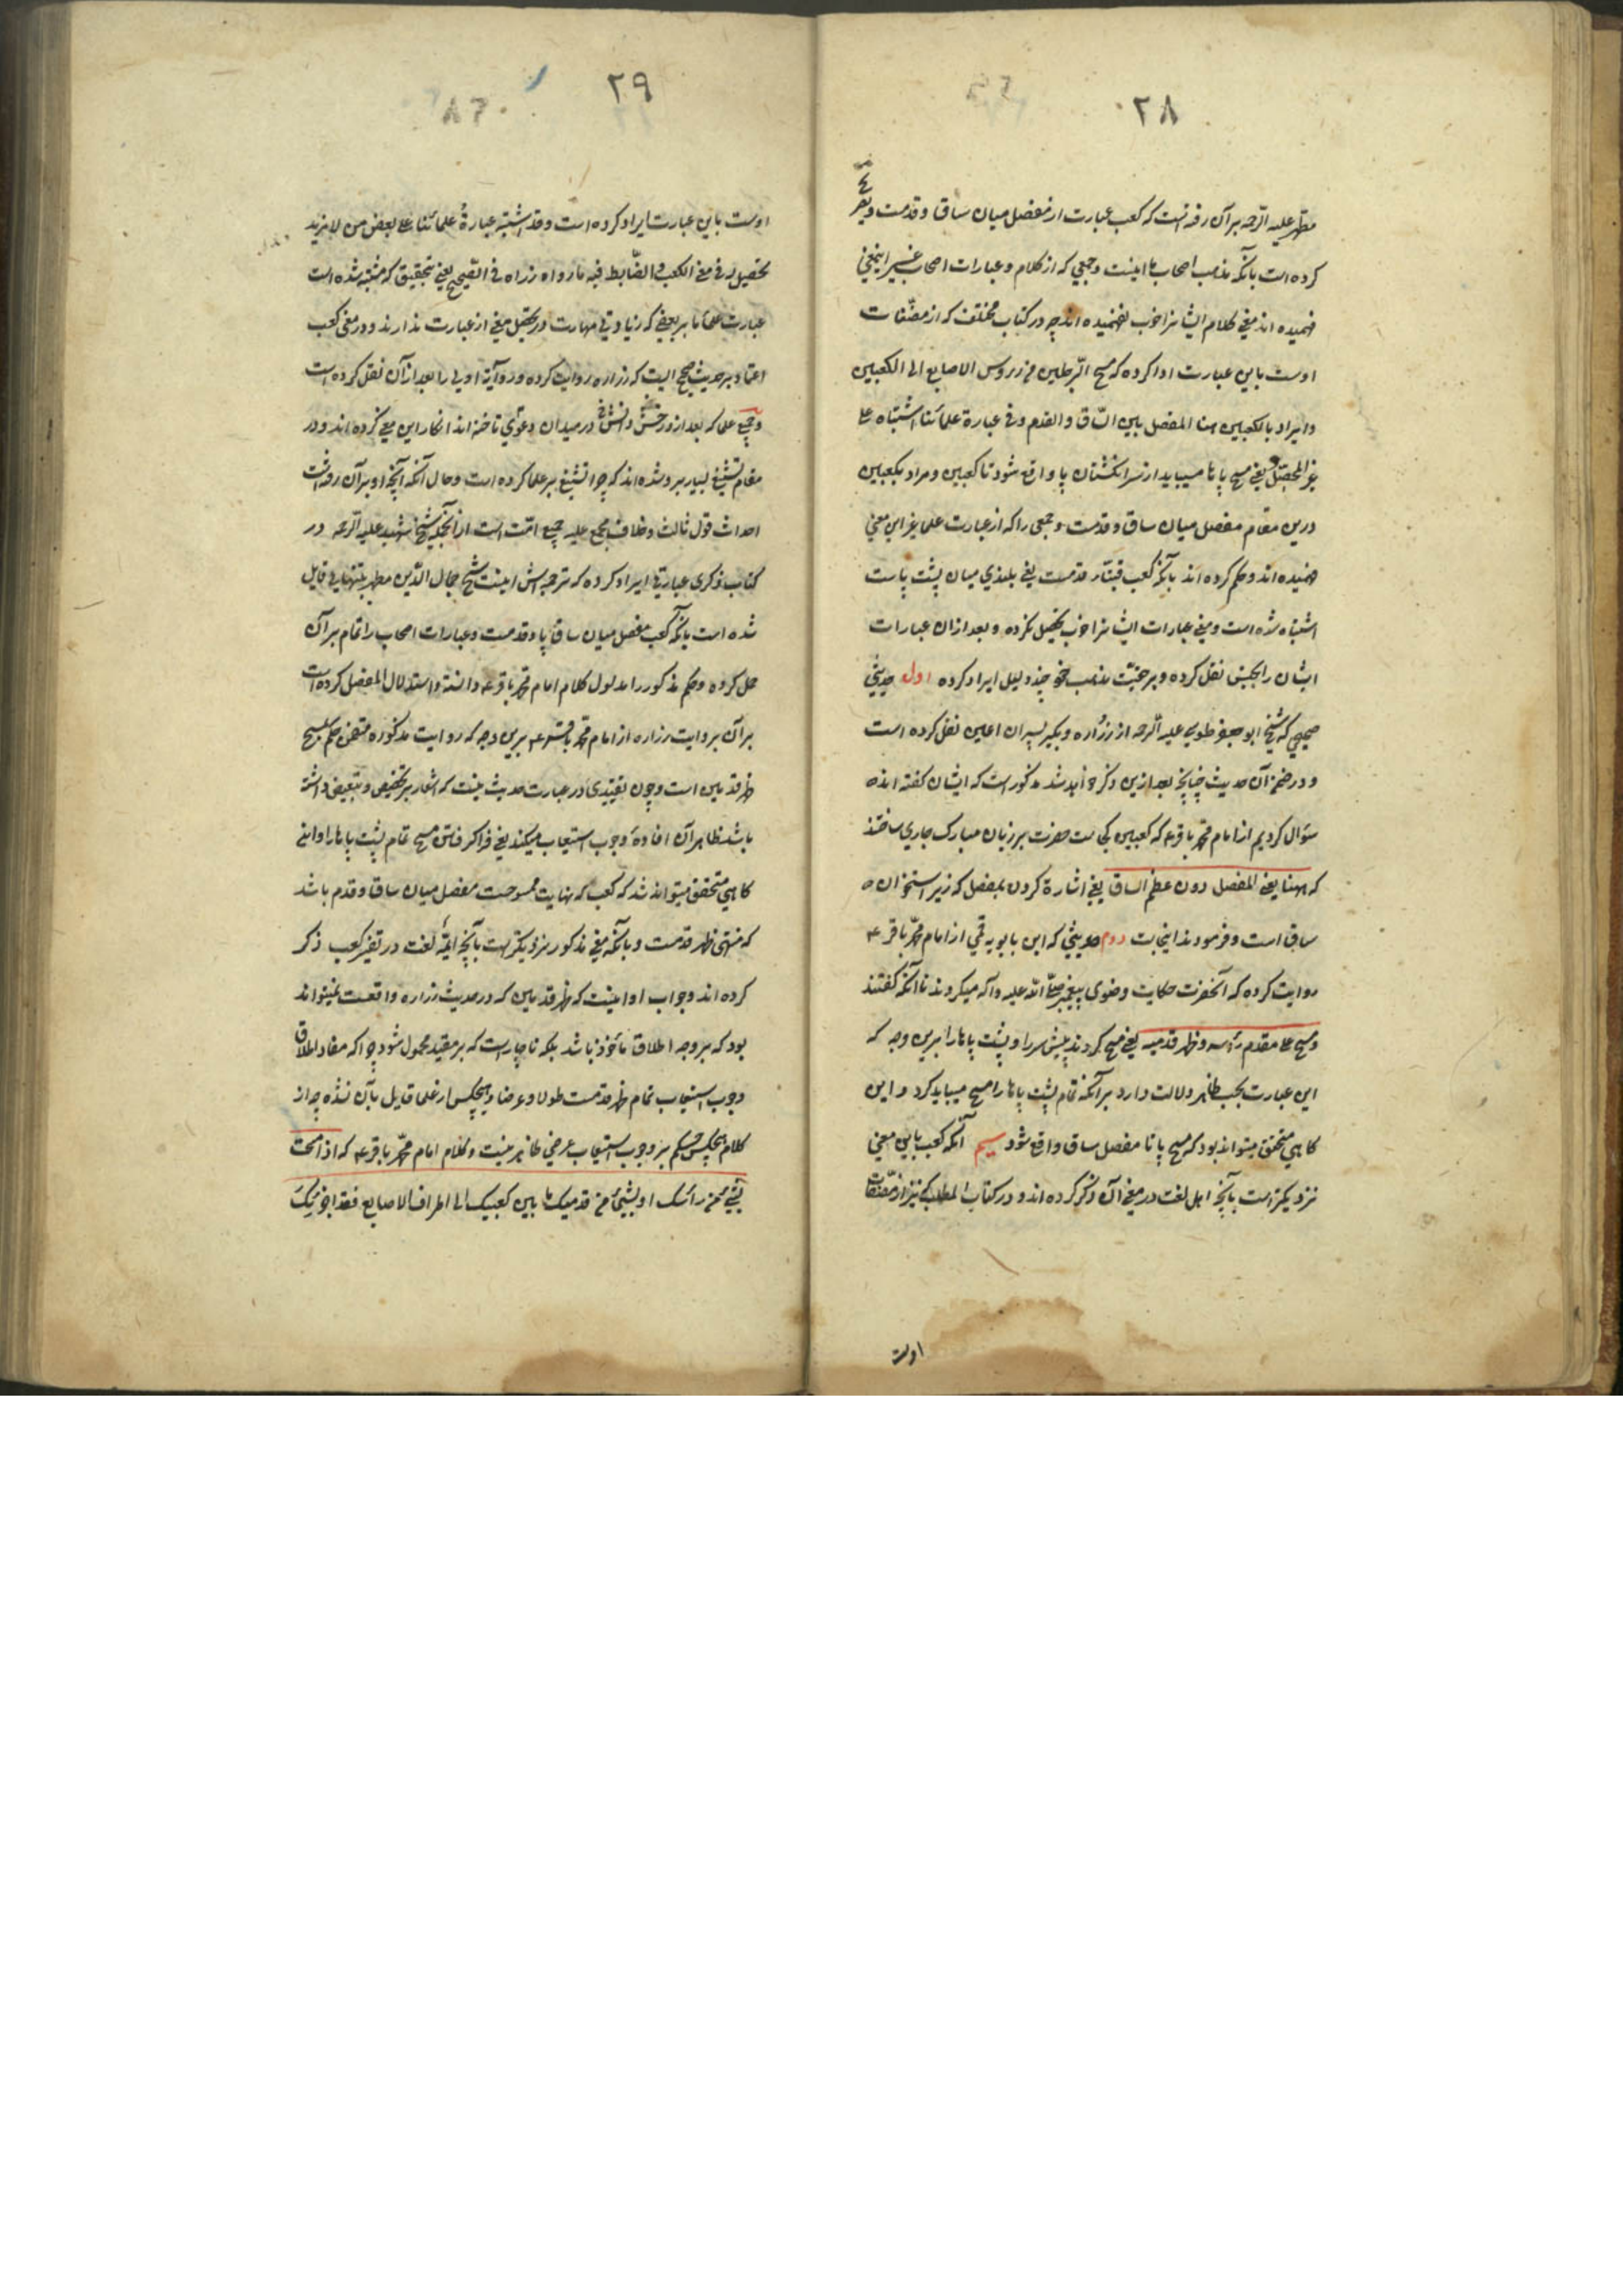 ۲۸
مطهر علیه الرحمه بر آن رفته است که کعب عبارت از مفصل میان ساق و قدمست و تصریح
کرده است بآنکه مذهب اصحاب ما اینست و جمعی که از کلام و عبارات اصحاب غیر اینمعنی
فهمیده اند معنی کلام ایشانرا خوب نفهمیده اند چه در کتاب مختلف که از مصنفات
اوست باین عبارت ادا کرده که مسح الرجلین من رؤس الاصابع الی الکعبین
و ایراد بالکعبین هنا المفصل بین الساق و القدم و فی عبارة علمائنا اشتباه علی
غیر المحصل یعنی مسح پاها میباید از سر انگشتان پا واقع شود تا کعبین و مراد بکعبین
درین مقام مفصل میان ساق و قدمست و جمعی را که از عبارت علما غیر این معنی
فهمیده اند و حکم کرده اند بآنکه کعب قبتّان قدمست یعنی بلندی میان پشت پاست
اشتباه شده است و معنی عبارات ایشانرا خوب تحصیل نکرده و بعد از ان عبارات
ایشان را بجنس نقل کرده و بر حقیّت مذهب خود چند دلیل ایراد کرده اول حدیثی
صحیحی که شیخ ابو جعفر طوسی علیه الرحمه از زراره و بکیر پسران اعین نقل کرده است
و در ضمن آن حدیث چنانچه بعد ازین ذکر خواهد شد مذکور است که ایشان گفته اند ه
سؤال کردیم از امام محمد باقر ع که کعبین کجاست حضرت بر زبان مبارک جاری ساختند
که ههنا یعنی المفصل دون عظم الساق یعنی اشارة کردن بمفصل که زیر استخوان ه
ساق است و فرمودند اینجاست دوم حدیثی که ابن بابویه قمی از امام محمد باقر ع
روایت کرده که آنحضرت حکایت وضوی پیغمبر صلی الله علیه و آله میکردند تا آنکه گفتند
و مسح علی مقدم رأسه و ظهر قدمیه یعنی مسح کردند پیش سر را و پشت پاها را برین وجه که
این عبارت بحسب ظاهر دلالت دارد بر آنکه تمام پشت پاها را مسح میباید کرد و این
گاهی متحقق میتواند بود که مسح پا تا مفصل ساق واقع شود سیم آنکه کعب باین معنی
نزدیکتر است بآنچه اهل لغت در معنی آن ذکر کرده اند و در کتاب المطلب که نیز از مصنفات
اوست
۲۹
اوست باین عبارت ایراد کرده است و قد اشتبه عبارة علمائنا علی بعض من لا مزید
تحصیل له فی معنی الکعب و الضابط فیه ما رواه زراه فی الصحیح یعنی بتحقیق که مشتبه شده است
عبارت علماء ما بر بعضی که زیادتی مهارت در تحصیل معنی از عبارت ندارند و در معنی کعب
اعتماد بر حدیث صحیح الیست که زراره روایت کرده و روایة اولی را بعد از آن نقل کرده است
و جمیع علما که بعد از و رخش دانش در میدان دعوی تاخته اند انکار این معنی کرده اند و در
مقام تشنیع بسیار برو شده اند که چرا تشنیع بر علما کرده است و حال آنکه آنچه او بر آن رفته است
احداث قول ثالث و خلاف مجمع علیه جمیع امّت است از انجمله شیخ شهید علیه الرحمه در
کتاب ذکری عبارتی ایراد کرده که ترجمه اش اینست شیخ جمال الدین مطهر بتنهایی قایل
شده است بآنکه کعب مفصل میان ساق پا و قدمست و عبارات اصحاب را تمام بر آن
حمل کرده و حکم مذکور را مدلول کلام امام محمد باقر ع دانسته و استدلال المفصل کرده است
بر آن بروایت زراره از امام محمد باقر ع برین وجه که روایت مذکوره متضمن حکم بمسح
ظهر قدمین است و چون تقییدی در عبارت حدیث نیست که اشعار بر تخصیص و تبعیض داشته
باشد ظاهر آن افاده وجوب استیعاب میکند یعنی فرا گرفتن مسح تمام پشت پاها را و این
گاهی متحقق میتواند شد که کعب که نهایت ممسوحست مفصل میان ساق و قدم باشد
که منتهی ظهر قدمست و بآنکه معنی مذکور نزدیکتر است بآنچه ائمّه لغت در تفسیر کعب ذکر
کرده اند و جواب او اینست که ظهر قدمین که در حدیث زراره واقعست نمیتواند
بود که بر وجه اطلاق مأخوذ باشد بلکه ناچار است که بر مقید محمول شود چرا که مفاد اطلاق
وجوب استیعاب تمام ظهر قدمست طولا و عرضا و هیچکس از علما قایل بآن نشده چه از
کلام هیچکس حکم بر وجوب استیعاب عرضی ظاهر نیست و کلام امام محمد باقر ع که اذا مسحت
بشیء من رأسک او بشیء من قدمیک ما بین کعبیک الی اطراف الاصابع فقد اجزئک